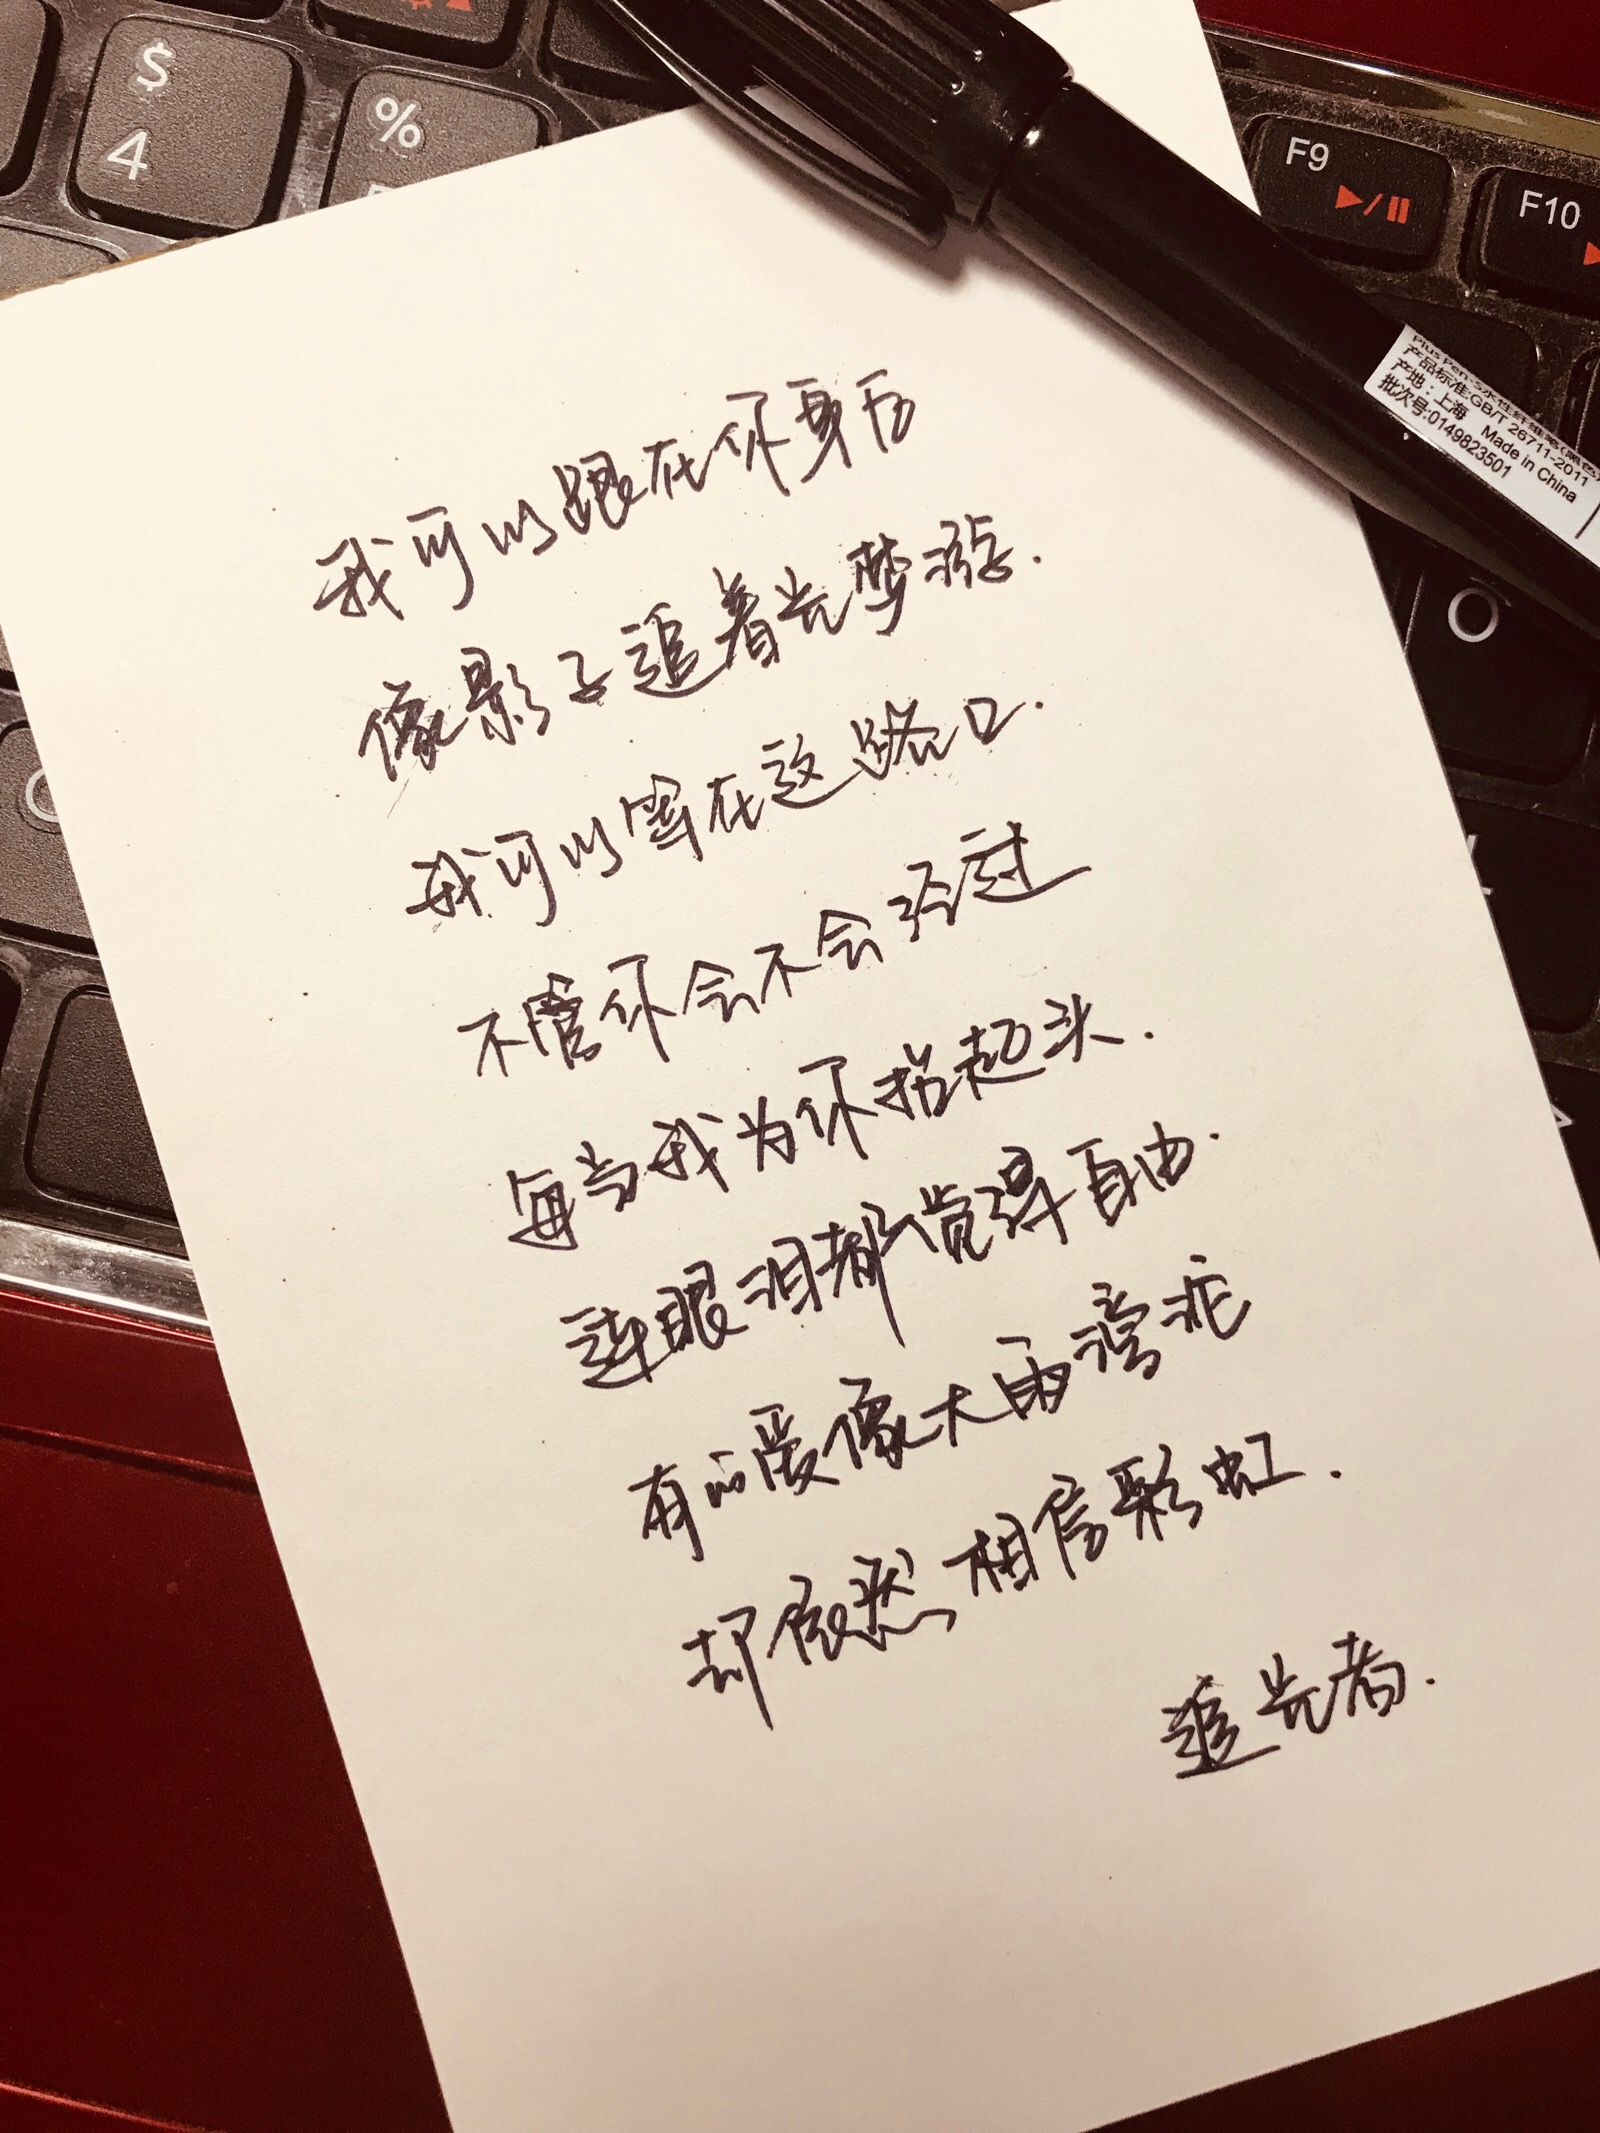 $
4
%
F9
F10
Plus Pen-S水性纤维笔(黑色)
产品标准:GB/T 26711-2011
产地：上海 Made in China
批次号:0149823501
O
我可以跟在你身后
像影子追着光梦游.
我可以等在这路口.
不管你会不会经过
每当我为你抬起头.
连眼泪都觉得自由.
有的爱像大雨滂沱
却依然相信彩虹.
追光者.